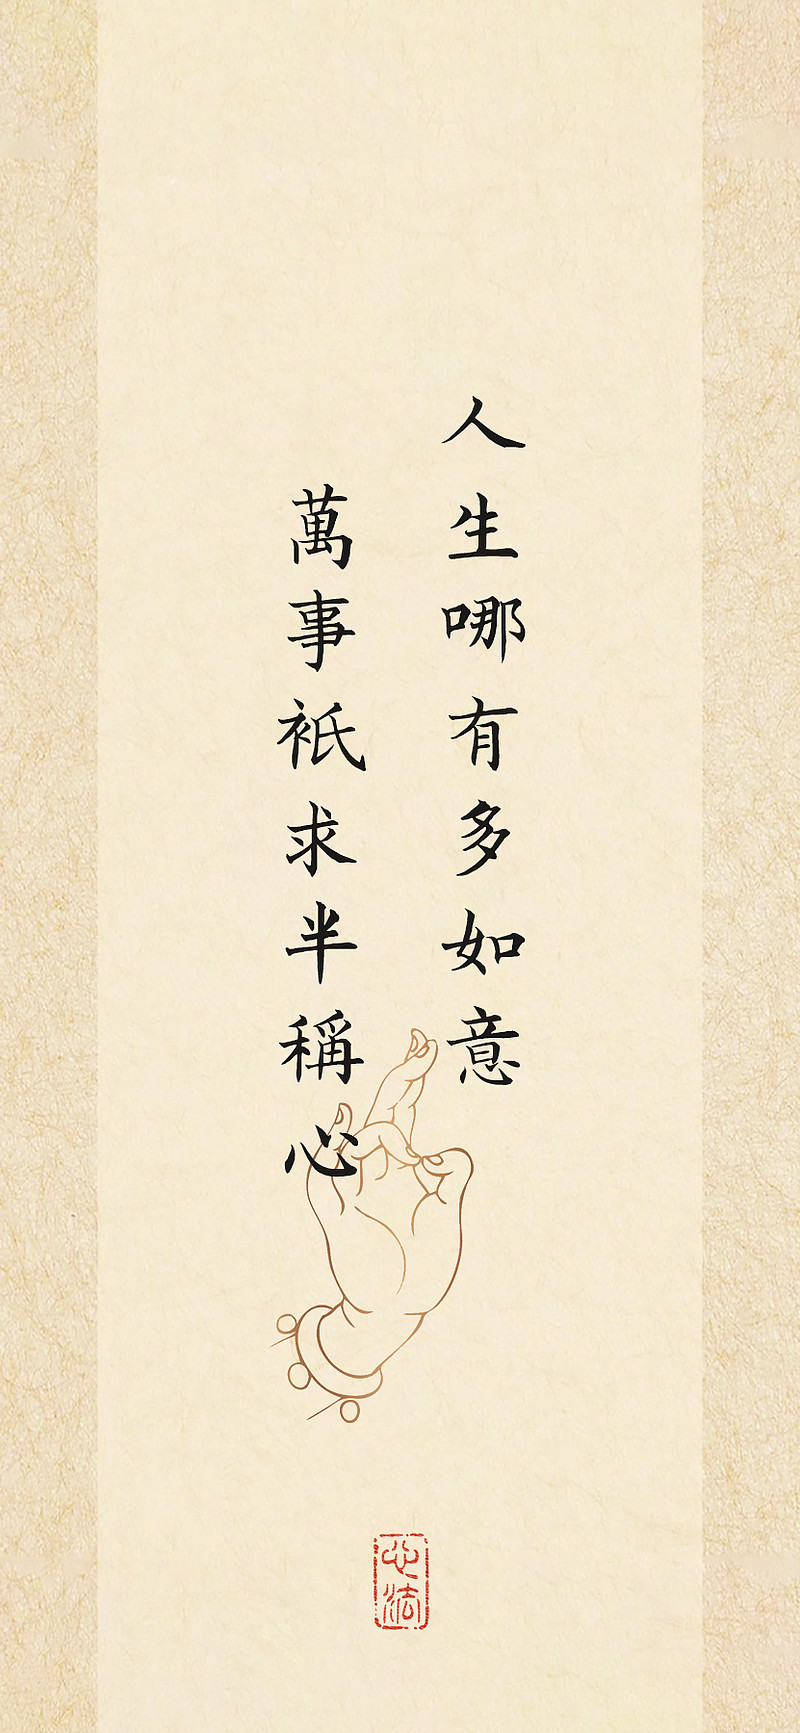 人生哪有多如意
萬事衹求半稱心
心法